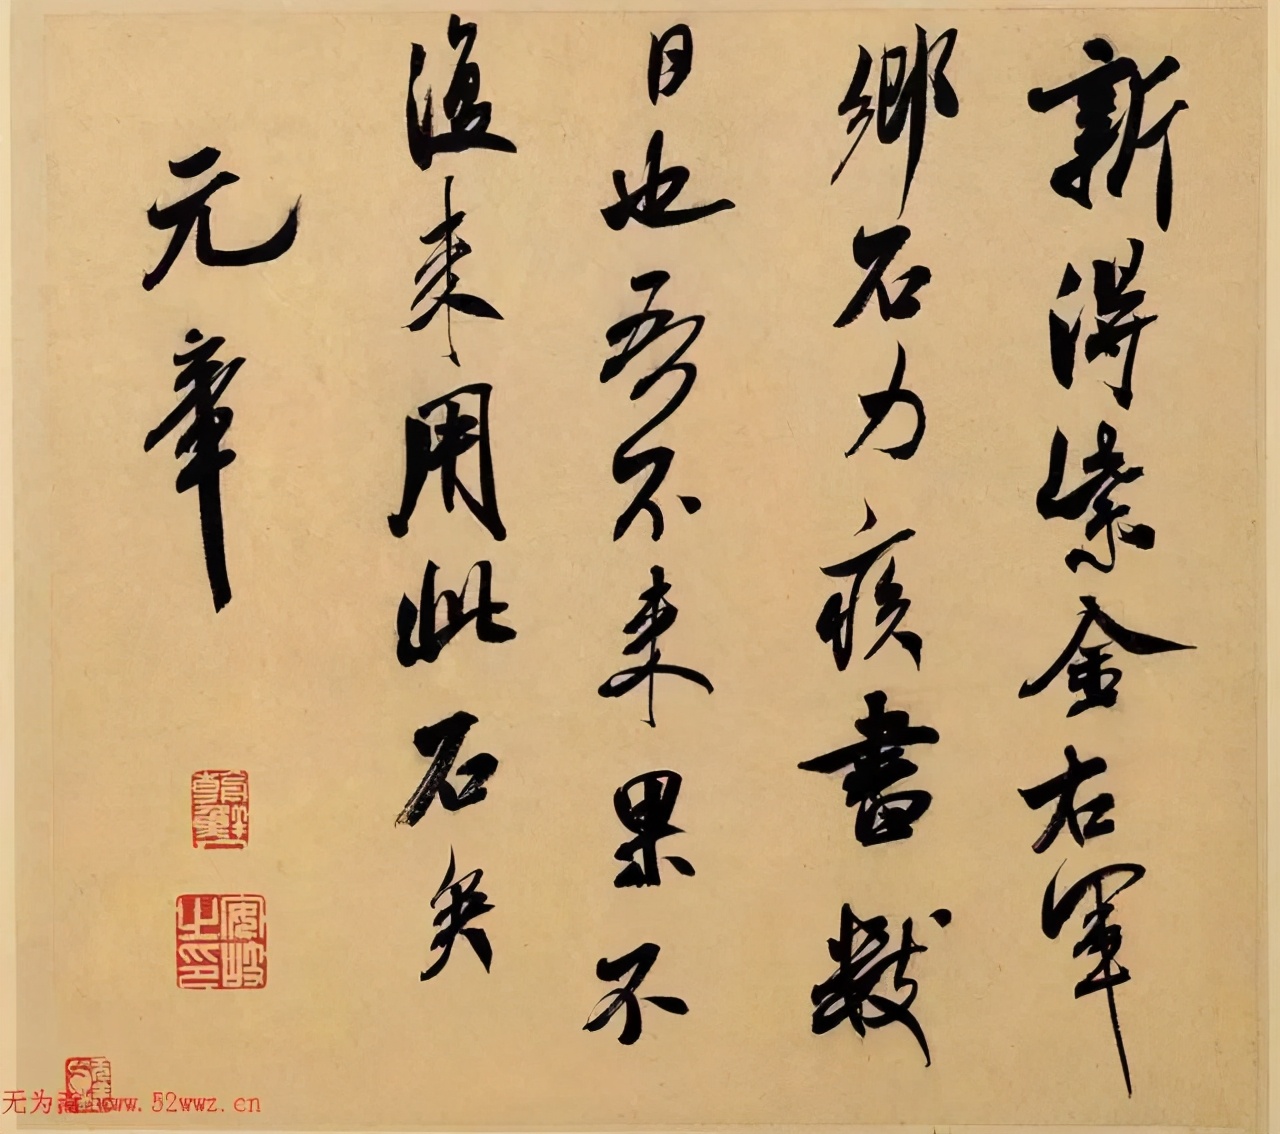 新得紫金右軍
鄉石力疾書數
日也吾不來果不
復來用此石矣
元章
无为斋 www.52wwz.cn